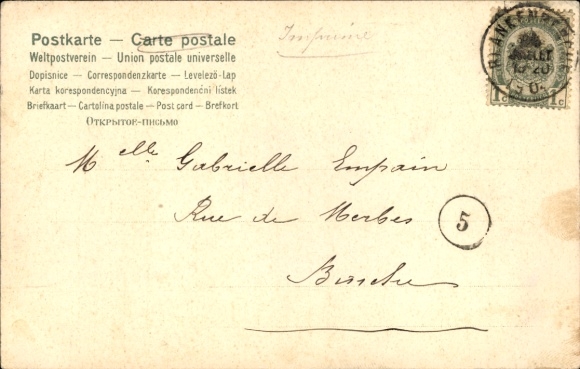 Postkarte — Carte postale
Imprimé
Weltpostverein — Union postale universelle
Dopisnice — Correspondenzkarte — Levelező-Lap
Karta korespondencyjna — Korespondenčni listek
Briefkaart — Cartolina postale — Post card — Brefkort
Открытое-письмо
BLANKENBERGHE
JUILLET
1c 1c
Melle Gabrielle Empain
Rue de Merbes
5
Binche